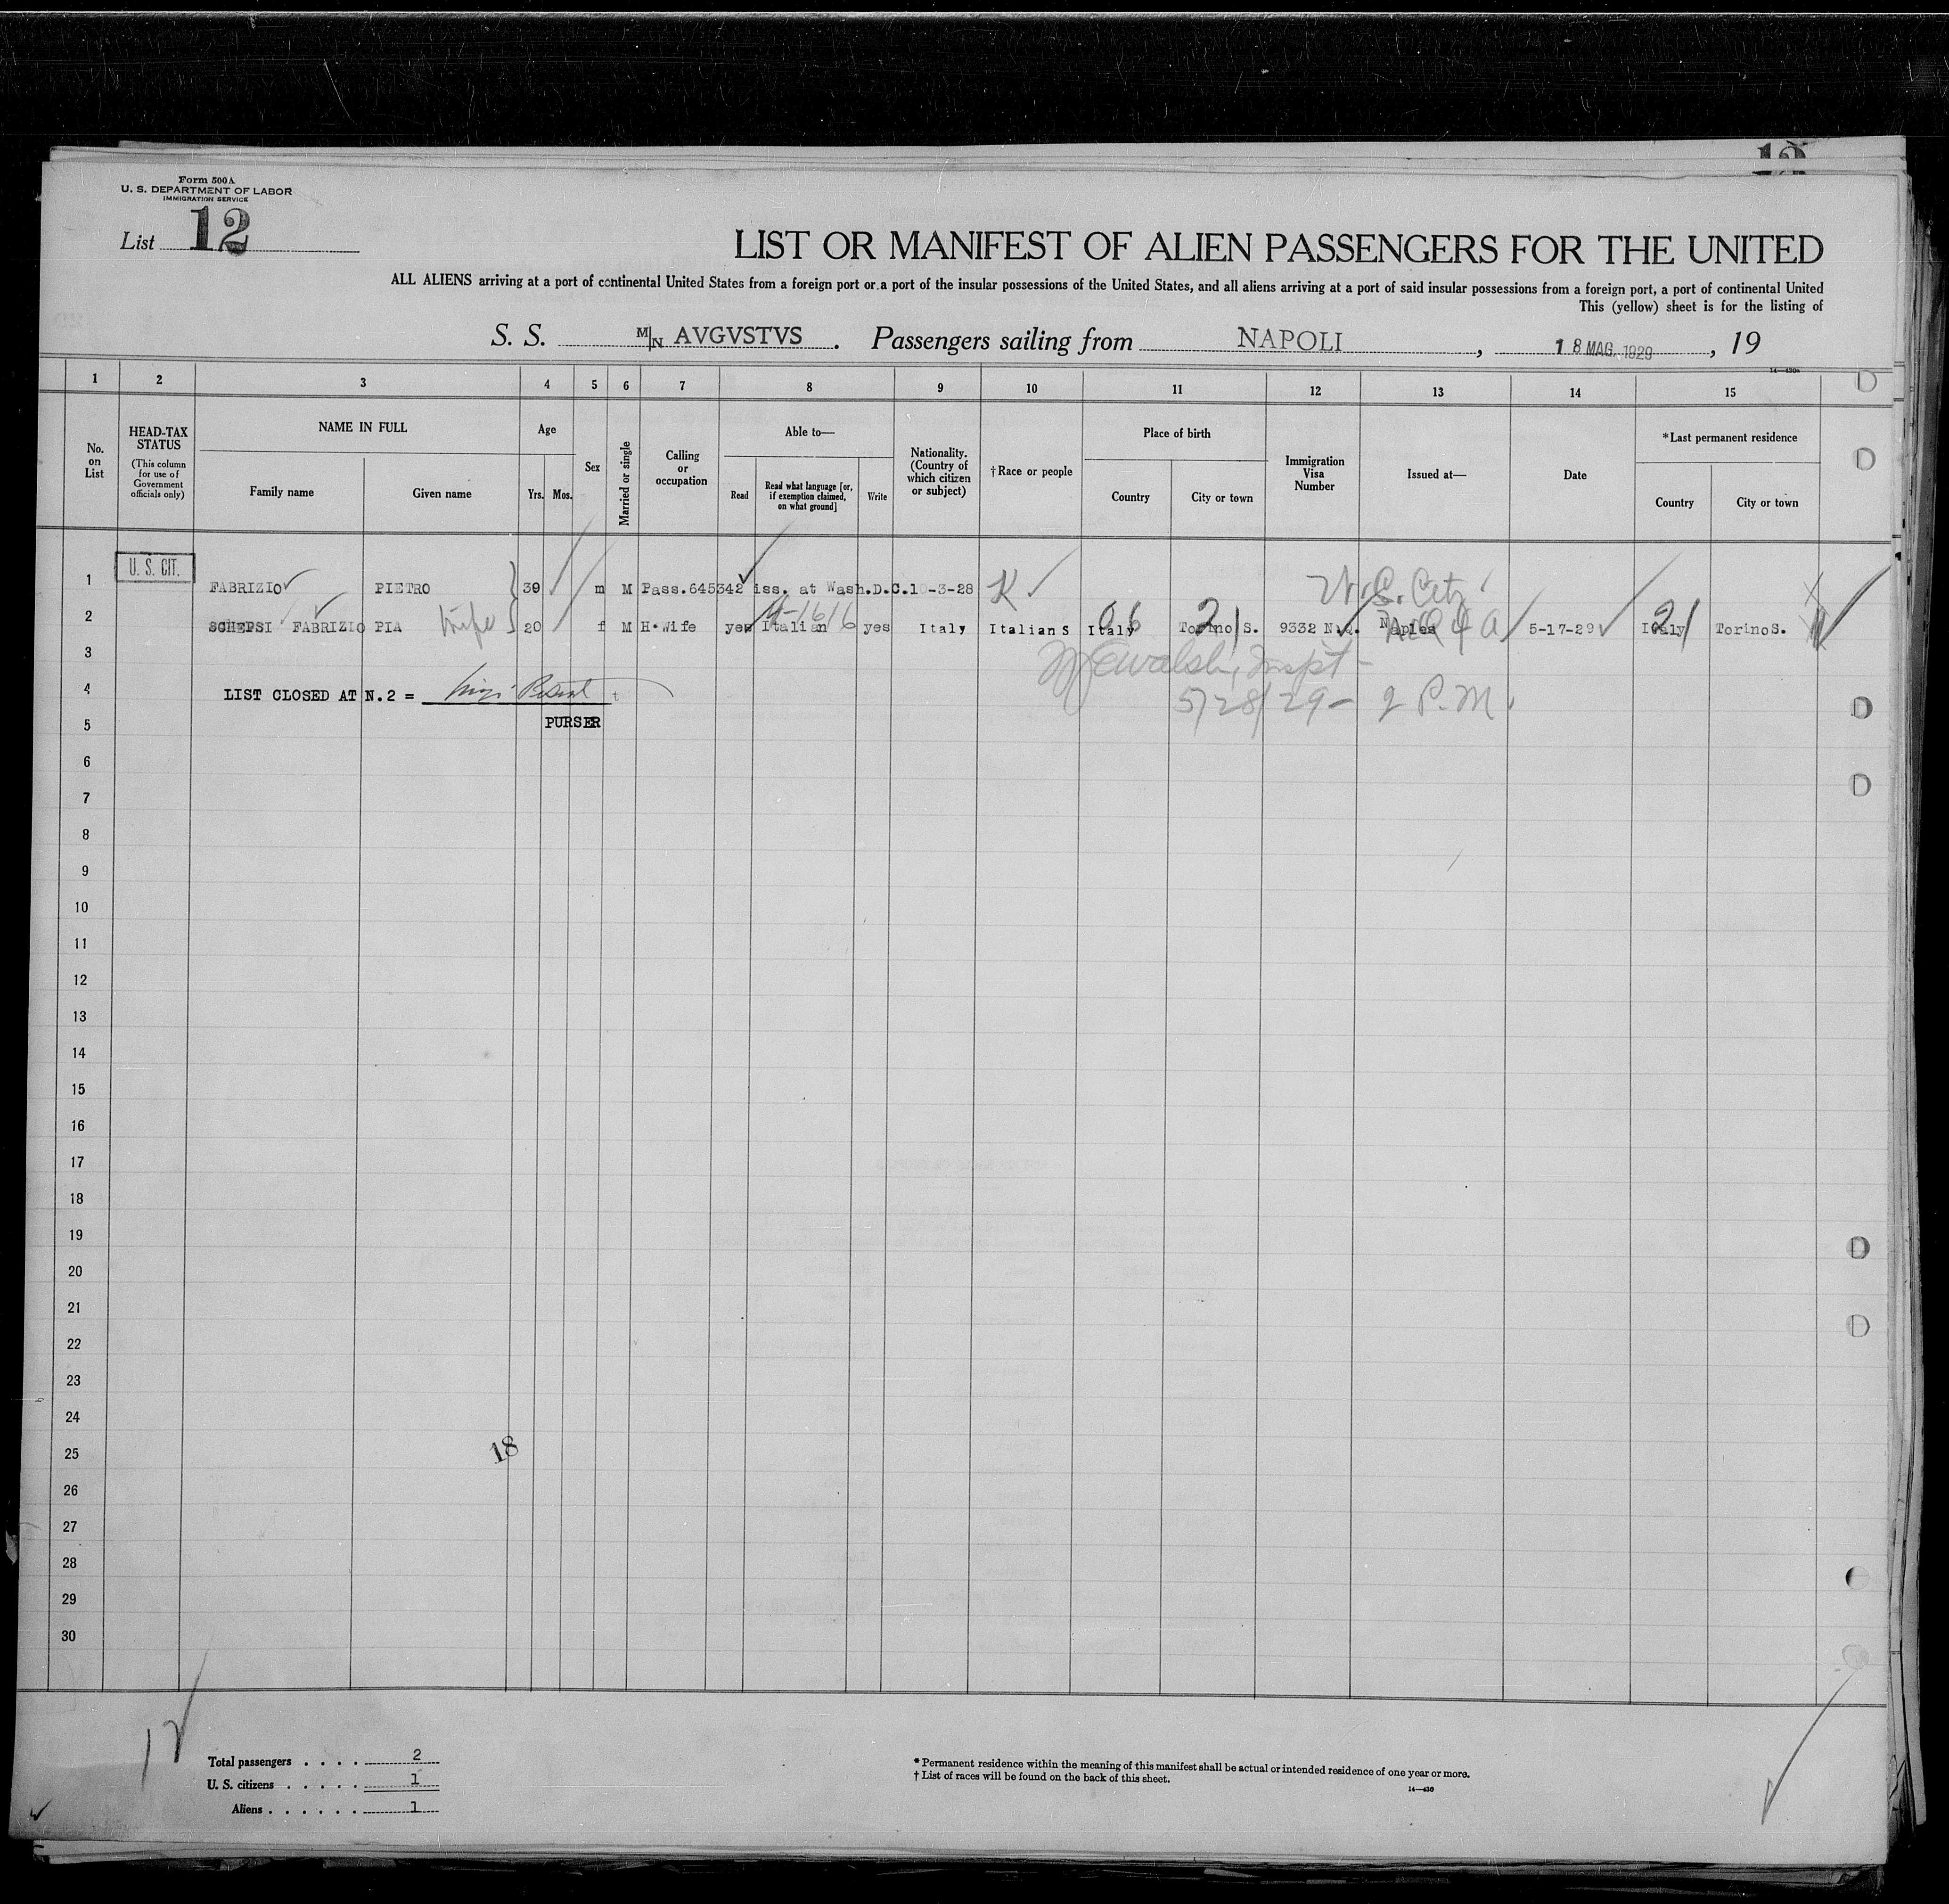 12
Form 500A
U. S. DEPARTMENT OF LABOR
IMMIGRATION SERVICE
List 12
LIST OR MANIFEST OF ALIEN PASSENGERS FOR THE UNITED
ALL ALIENS arriving at a port of continental United States from a foreign port or a port of the insular possessions of the United States, and all aliens arriving at a port of said insular possessions from a foreign port, a port of continental United
This (yellow) sheet is for the listing of
S. S. M/N AVGVSTVS . Passengers sailing from NAPOLI , 18 MAG. 1929 , 19
14—430a
1 2 3 4 5 6 7 8 9 10 11 12 13 14 15
No. on List
HEAD-TAX STATUS
(This column for use of Government officials only)
NAME IN FULL
Family name
Given name
Age
Yrs. Mos.
Sex
Married or single
Calling or occupation
Able to—
Read
Read what language [or, if exemption claimed, on what ground]
Write
Nationality. (Country of which citizen or subject)
†Race or people
Place of birth
Country
City or town
Immigration Visa Number
Issued at—
Date
*Last permanent residence
Country
City or town
1 U. S. CIT. FABRIZIO PIETRO 39 m M Pass.645342 iss. at Wash.D.C.10-3-28 K U.S. Citz
M-1616
2 SCHEPSI FABRIZIO PIA wife 20 f M H.Wife yes Italian yes Italy Italian S Italy 06 Torino S. 21 9332 N.Q. Naples 5-17-29 Italy 21 Torino S.
3 Inspt
4 LIST CLOSED AT N.2 = 5/28/29 - 2 P.M.
5 PURSER
6
7
8
9
10
11
12
13
14
15
16
17
18
19
20
21
22
23
24
25 18
26
27
28
29
30
12
Total passengers . . . . 2
U. S. citizens . . . . . 1
Aliens . . . . . . 1
* Permanent residence within the meaning of this manifest shall be actual or intended residence of one year or more.
† List of races will be found on the back of this sheet.
14—430